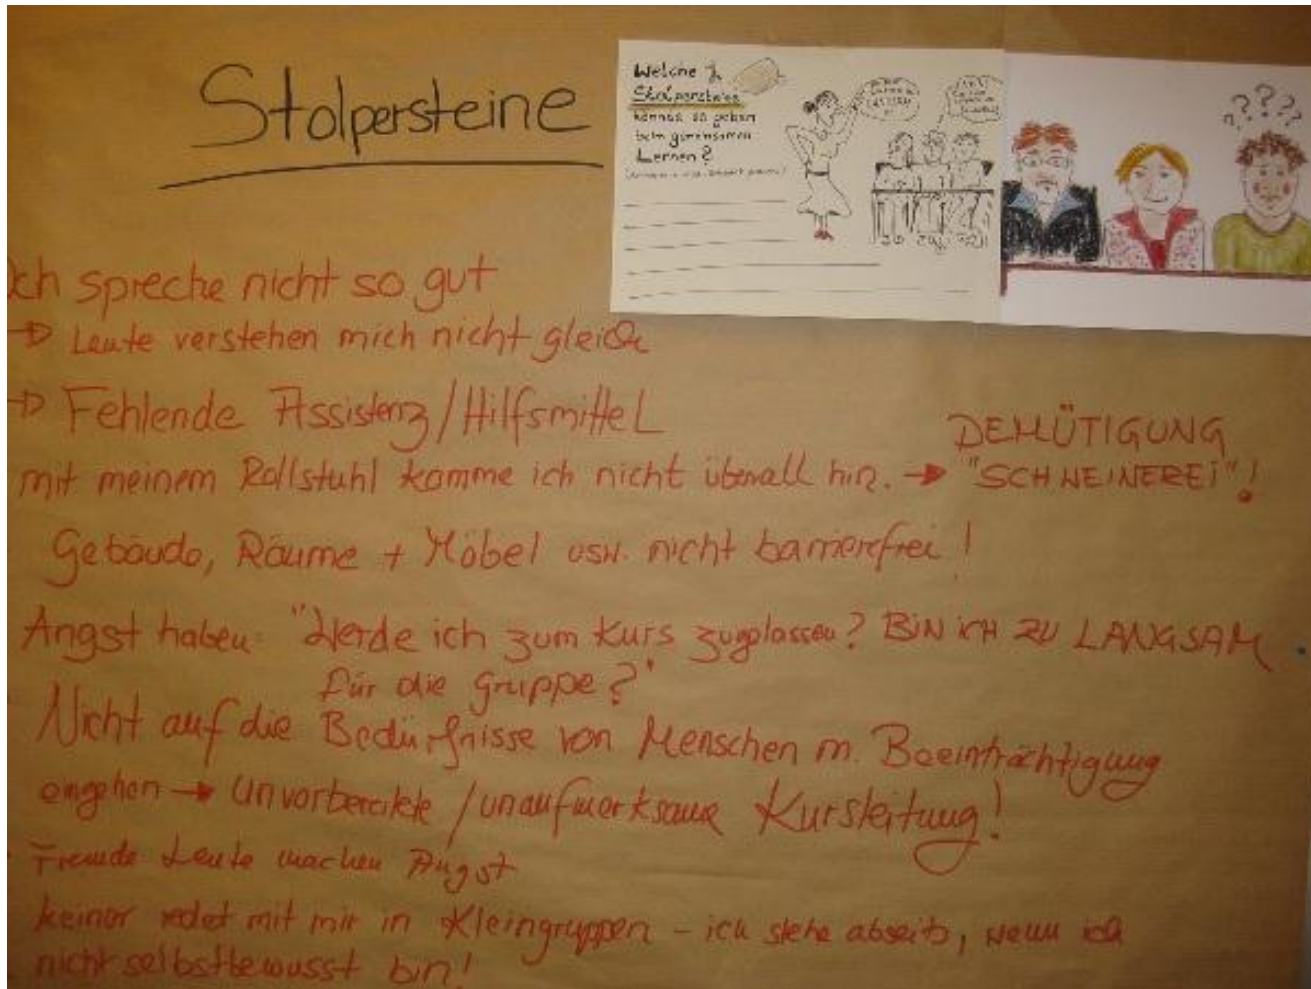 Stolpersteine
Welche
Stolpersteine
können es geben
beim gemeinsamen
Lernen?
????
Ich spreche nicht so gut
→ Leute verstehen mich nicht gleich
→ Fehlende Assistenz/Hilfsmittel
mit meinem Rollstuhl komme ich nicht überall hin. → DEMÜTIGUNG
"SCHWEINEREI"!
Gebäude, Räume + Möbel usw. nicht barrierefrei!
Angst haben: "Werde ich zum Kurs zugelassen? BIN ICH ZU LANGSAM
für die Gruppe?"
Nicht auf die Bedürfnisse von Menschen m. Beeinträchtigung
eingehen → unvorbereitete/unaufmerksame Kursleitung!
Fremde Leute machen Angst
keiner redet mit mir in Kleingruppen - ich stehe abseits, wenn ich
nicht selbstbewusst bin!